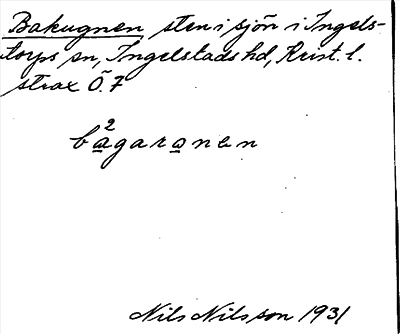 Bakugnen sten i sjön i Ingels-
torps sn, Ingelstads hd, Krist. l.
strax Ö. 7
2
bagaronen
Nils Nilsson 1931